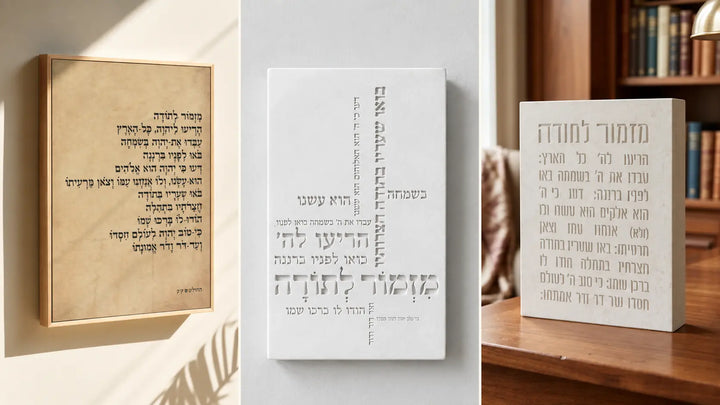 מִזְמוֹר לְתוֹדָה
הָרִיעוּ לַיהוָה, כָּל-הָאָרֶץ
עִבְדוּ אֶת-יְהוָה בְּשִׂמְחָה
בֹּאוּ לְפָנָיו בִּרְנָנָה
דְּעוּ כִּי יְהוָה הוּא אֱלֹהִים
הוּא-עָשָׂנוּ, וְלוֹ אֲנַחְנוּ עַמּוֹ וְצֹאן מַרְעִיתוֹ
בֹּאוּ שְׁעָרָיו בְּתוֹדָה
חֲצֵרֹתָיו בִּתְהִלָּה
הוֹדוּ-לוֹ בָּרְכוּ שְׁמוֹ
כִּי-טוֹב יְהוָה לְעוֹלָם חַסְדּוֹ
וְעַד-דֹּר וָדֹר אֱמוּנָתוֹ
בואו שעריו בתודה חצרותיו
בשמחה
הוא עשנו
עבדו את ה' בשמחה בואו לפניו
הריעו לה'
בואו לפניו ברננה
מִזְמוֹר לְתוֹדָה
הודו לו ברכו שמו
מזמור לתודה
הריעו לה' כל הארץ:
עבדו את ה' בשמחה באו
לפניו ברננה: דעו כי ה'
הוא אלקים הוא עשנו ולו
(ולא) אנחנו עמו וצאן
מרעיתו: באו שעריו בתודה
חצרתיו בתהלה הודו לו
ברכו שמו: כי טוב ה' לעולם
חסדו ועד דר ודר אמונתו: